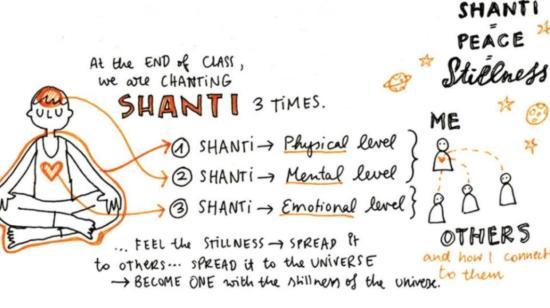 At the END of CLASS,
we are CHANTING
SHANTI 3 TIMES.
① SHANTI → Physical level
② SHANTI → Mental level
③ SHANTI → Emotional level
... FEEL the STILLNESS → SPREAD it
to OTHERS... SPREAD it to the UNIVERSE
→ BECOME ONE with the stillness of the universe.
SHANTI
=
PEACE
=
Stillness
ME
OTHERS
and how I connect
to them